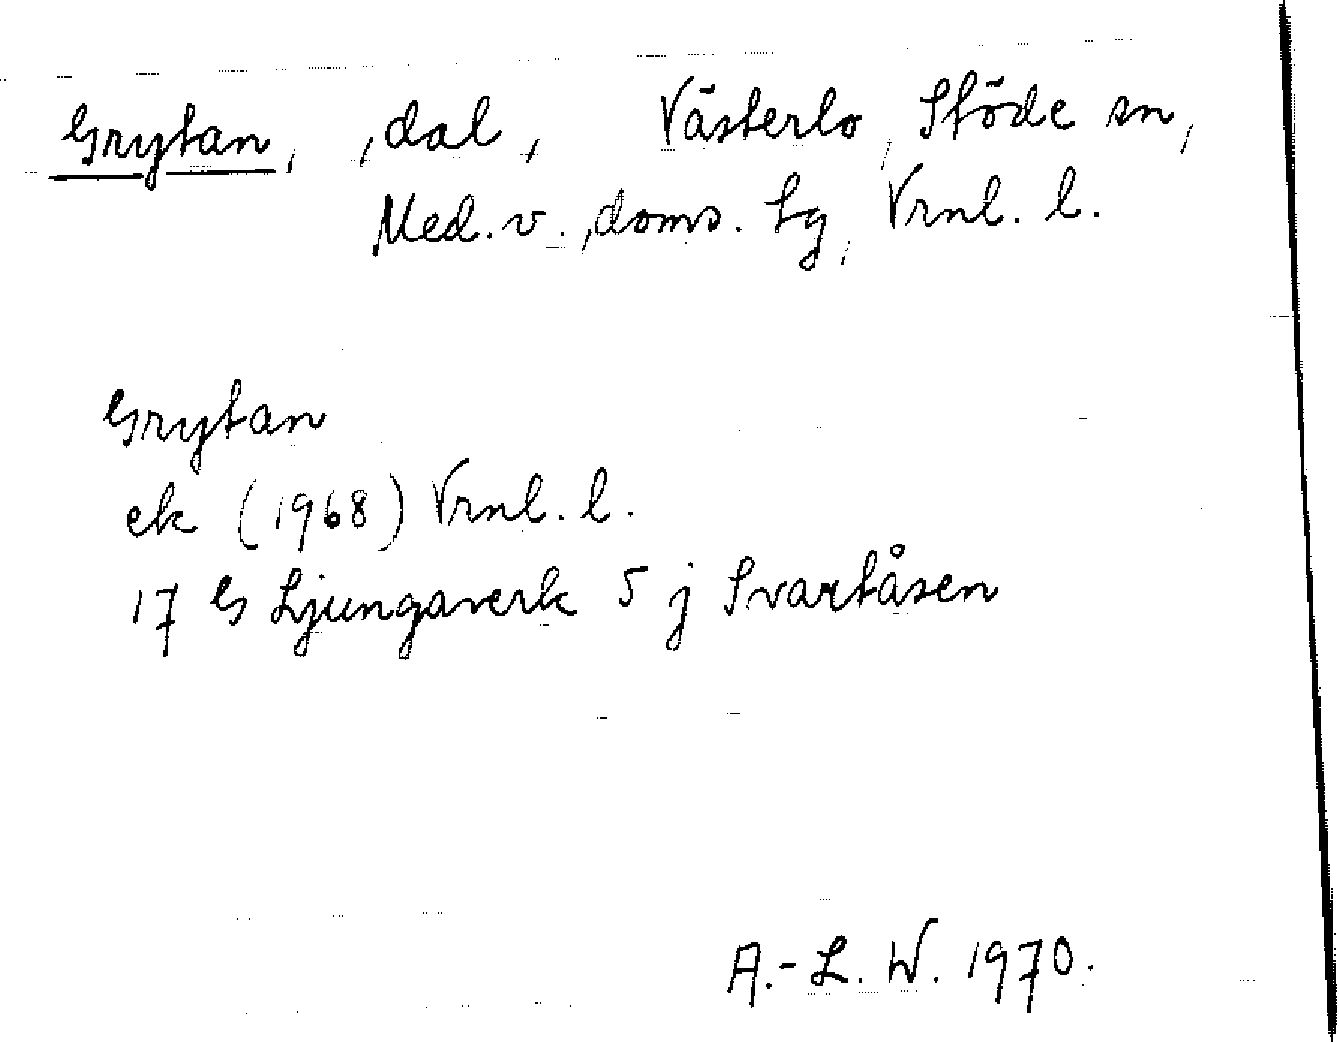 Grytan, , dal, Västerlo, Stöde sn,
Med. v. , doms. tg, Vrnl. l.
Grytan
ek (1968) Vrnl. l.
17 G Ljungaverk 5 j Svartåsen
A.-L. W. 1970.